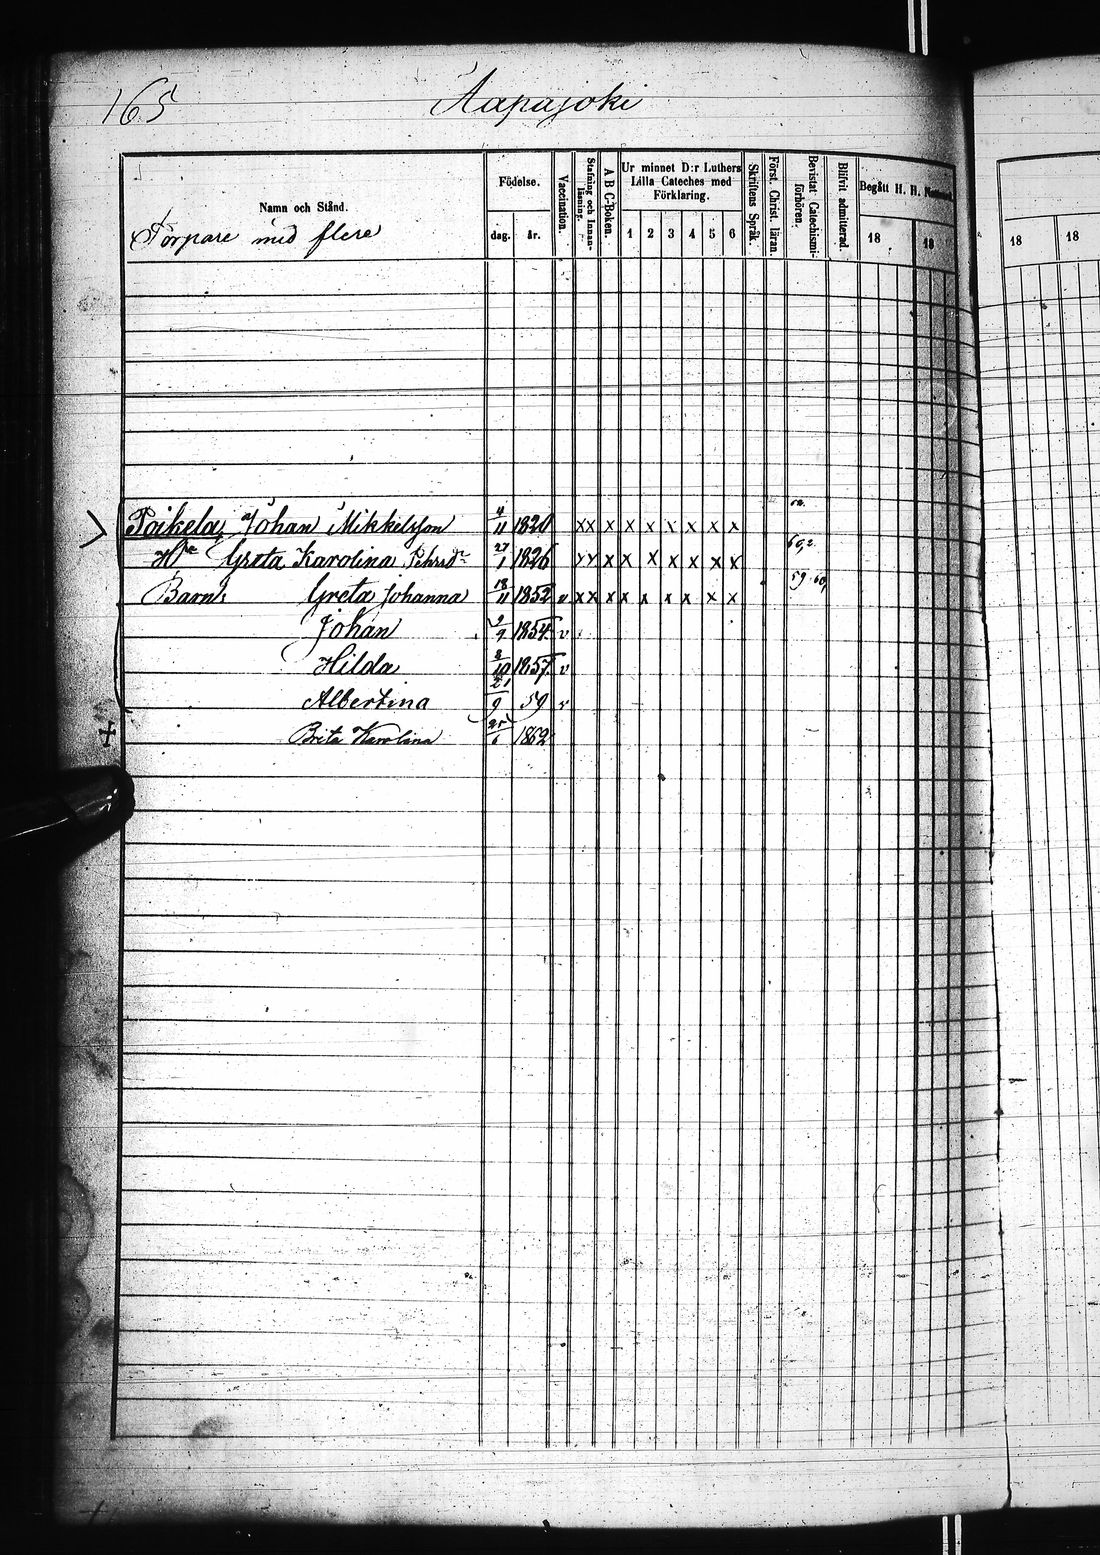 165 Aapajoki
Namn och Stånd.
Torpare med flere
Födelse.
dag. år.
Vaccination.
Stafning och Innan-
läsning.
A B C-Boken.
Ur minnet D:r Luthers
Lilla Cateches med
Förklaring.
1 2 3 4 5 6
Skriftens Språk.
Först. Christ. läran.
Bevistat Catechismi-
förhören.
Blifvit admitterad.
Begått H. H. Nattvard.
18 18 18 18
Poikela, Johan Mikkelsson 4/11 1820 xx x x x x x x x
Hu Greta Karolina Pehrsd:r 27/1 1826 xx x x x x x x x 60,2
Barn: Greta Johanna 18/11 1852 v xx x x x x x x x 59.60
Johan 9/9 1854 v
Hilda 8/10 1857. v
Albertina 21/9 59 v
+ Brita Karolina 25/6 1862